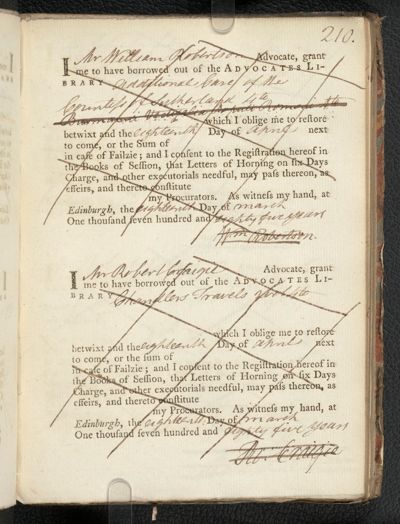 210.
I Mr William Robertson Advocate, grant
me to have borrowed out of the ADVOCATES LI-
BRARY additional Case of the
Countess of Sutherland 4to
which I oblige me to restore
betwixt and the eighteenth Day of April next
to come, or the Sum of
in caſe of Failzie; and I conſent to the Regiſtration hereof in
the Books of Seſſion, that Letters of Horning on ſix Days
Charge, and other executorials needful, may paſs thereon, as
effeirs, and thereto conſtitute
my Procurators. As witneſs my hand, at
Edinburgh, the eighteenth Day of March
One thouſand ſeven hundred and eighty five years
Wm Robertson.
I Mr Robert Craigie Advocate, grant
me to have borrowed out of the ADVOCATES LI-
BRARY Chandlers Travels
which I oblige me to reſtore
betwixt and the eighteenth Day of April next
to come, or the ſum of
in caſe of Failzie; and I conſent to the Regiſtration hereof in
the Books of Seſſion, that Letters of Horning on ſix Days
Charge, and other executorials needful, may paſs thereon, as
effeirs, and thereto conſtitute
my Procurators. As witneſs my hand, at
Edinburgh, the eighteenth Day of March
One thouſand ſeven hundred and eighty five years
Craigie